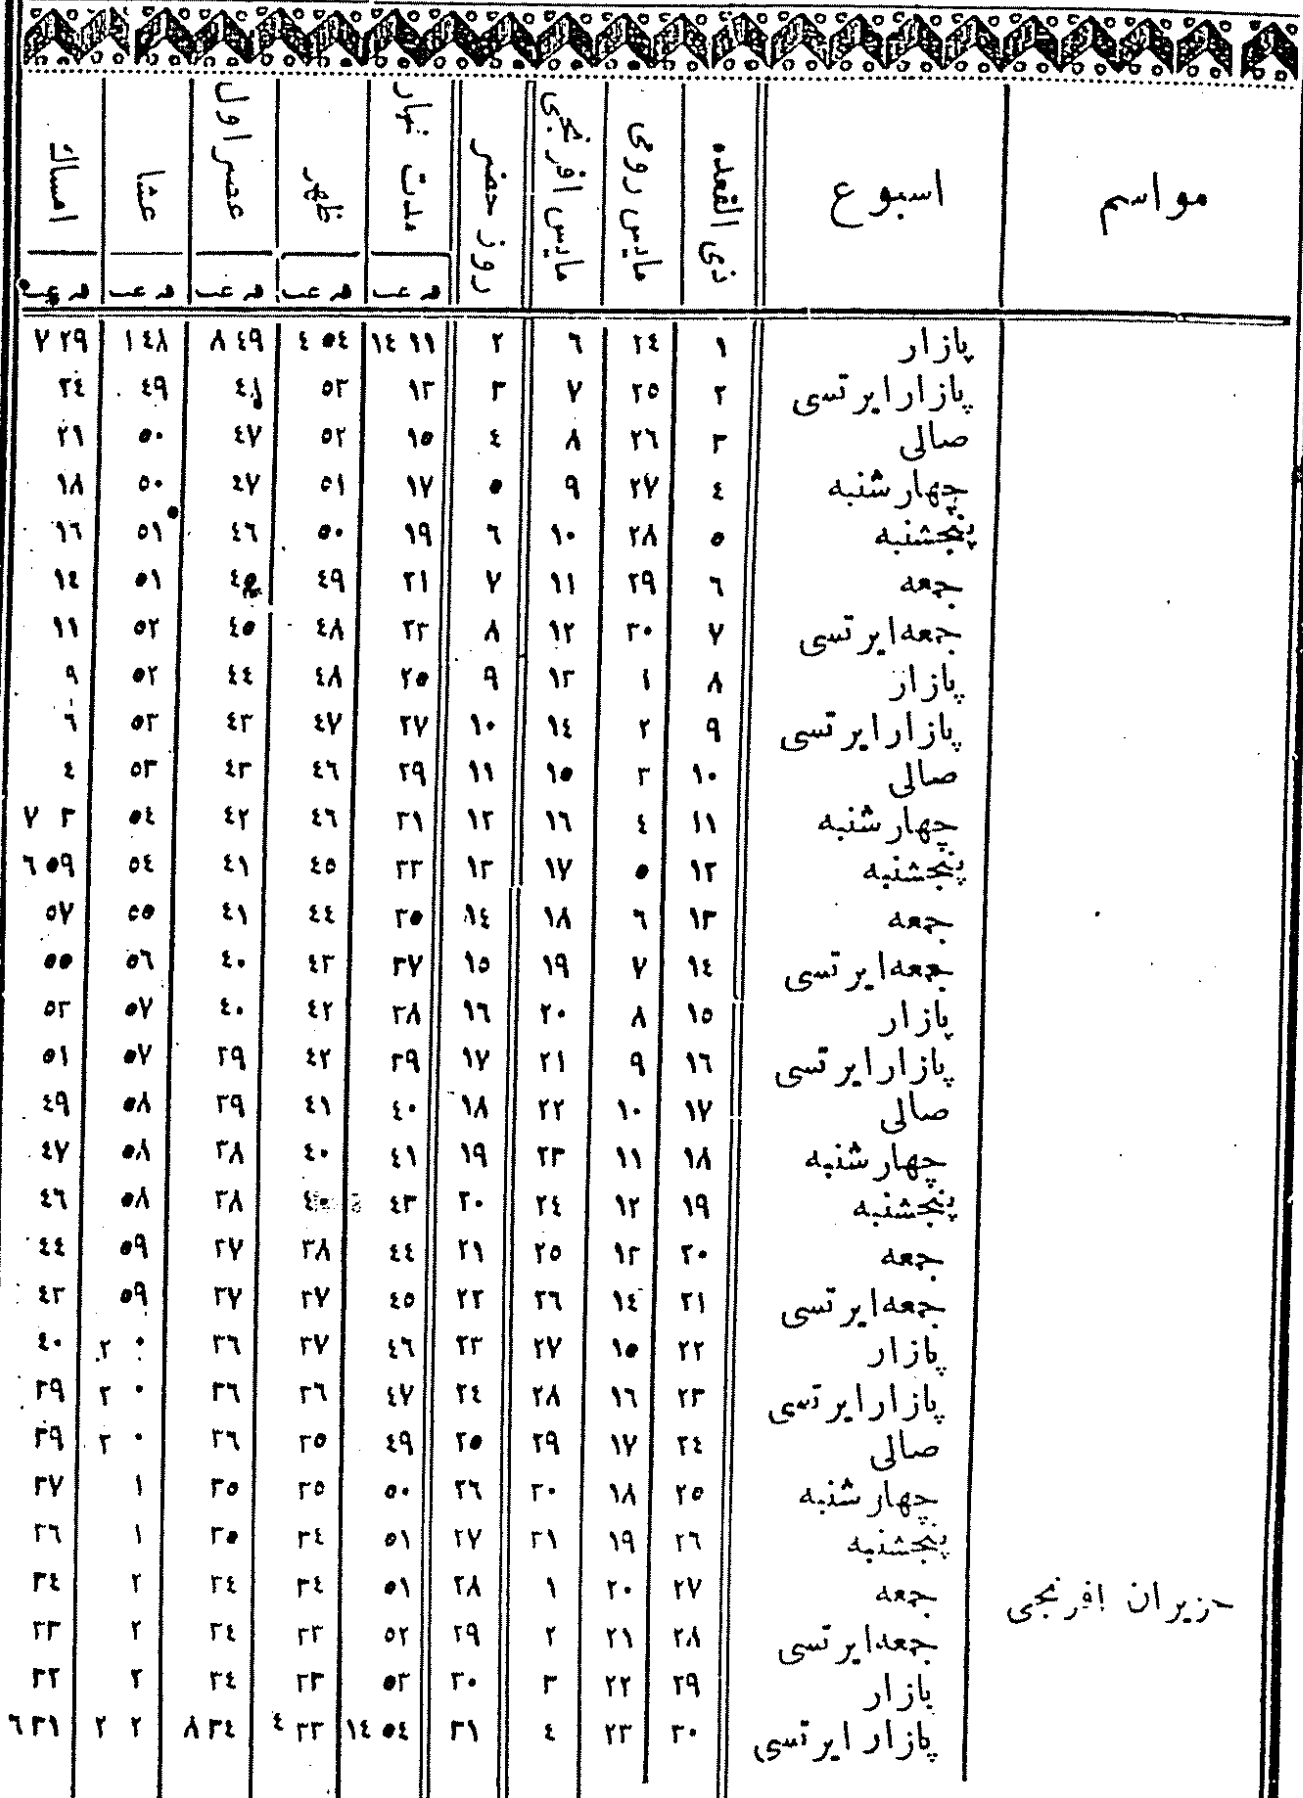 مواسم اسبوع ذی القعده مایس رومی مایس افرنجی روز حضر مدت نهار ظهر عصر اول عشا امساك
پازار ١ ٢٤ ٦ ٢ ١١ ١٤ ٥٤ ٤ ٤٩ ٨ ٤٨ ١ ٢٩ ٧
پازار ایرتسی ٢ ٢٥ ٧ ٣ ١٣ ٥٣ ٤٨ ٤٩ ٢٤
صالی ٣ ٢٦ ٨ ٤ ١٥ ٥٢ ٤٧ ٥٠ ٢١
چهارشنبه ٤ ٢٧ ٩ ٥ ١٧ ٥١ ٤٧ ٥٠ ١٨
پنجشنبه ٥ ٢٨ ١٠ ٦ ١٩ ٥٠ ٤٦ ٥١ ١٦
جمعه ٦ ٢٩ ١١ ٧ ٢١ ٤٩ ٤٥ ٥١ ١٤
جمعه ایرتسی ٧ ٣٠ ١٢ ٨ ٢٣ ٤٨ ٤٥ ٥٢ ١١
پازار ٨ ١ ١٣ ٩ ٢٥ ٤٨ ٤٤ ٥٢ ٩
پازار ایرتسی ٩ ٢ ١٤ ١٠ ٢٧ ٤٧ ٤٣ ٥٣ ٦
صالی ١٠ ٣ ١٥ ١١ ٢٩ ٤٦ ٤٣ ٥٣ ٤
چهارشنبه ١١ ٤ ١٦ ١٢ ٣١ ٤٦ ٤٢ ٥٤ ٣ ٧
پنجشنبه ١٢ ٥ ١٧ ١٣ ٣٣ ٤٥ ٤١ ٥٤ ٥٩ ٦
جمعه ١٣ ٦ ١٨ ١٤ ٣٥ ٤٤ ٤١ ٥٥ ٥٧
جمعه ایرتسی ١٤ ٧ ١٩ ١٥ ٣٧ ٤٣ ٤٠ ٥٦ ٥٥
پازار ١٥ ٨ ٢٠ ١٦ ٣٨ ٤٢ ٤٠ ٥٧ ٥٣
پازار ایرتسی ١٦ ٩ ٢١ ١٧ ٣٩ ٤٢ ٣٩ ٥٧ ٥١
صالی ١٧ ١٠ ٢٢ ١٨ ٤٠ ٤١ ٣٩ ٥٨ ٤٩
چهارشنبه ١٨ ١١ ٢٣ ١٩ ٤١ ٤٠ ٣٨ ٥٨ ٤٧
پنجشنبه ١٩ ١٢ ٢٤ ٢٠ ٤٣ ٤٠ ٣٨ ٥٨ ٤٦
جمعه ٢٠ ١٣ ٢٥ ٢١ ٤٤ ٣٨ ٣٧ ٥٩ ٤٤
جمعه ایرتسی ٢١ ١٤ ٢٦ ٢٢ ٤٥ ٣٧ ٣٧ ٥٩ ٤٣
پازار ٢٢ ١٥ ٢٧ ٢٣ ٤٦ ٣٧ ٣٦ ٠ ٢ ٤٠
پازار ایرتسی ٢٣ ١٦ ٢٨ ٢٤ ٤٧ ٣٦ ٣٦ ٠ ٢ ٣٩
صالی ٢٤ ١٧ ٢٩ ٢٥ ٤٩ ٣٥ ٣٦ ٠ ٢ ٣٩
چهارشنبه ٢٥ ١٨ ٣٠ ٢٦ ٥٠ ٣٥ ٣٥ ١ ٣٧
پنجشنبه ٢٦ ١٩ ٣١ ٢٧ ٥١ ٣٤ ٣٥ ١ ٣٦
حزیران افرنجی جمعه ٢٧ ٢٠ ١ ٢٨ ٥١ ٣٤ ٣٤ ٢ ٣٤
جمعه ایرتسی ٢٨ ٢١ ٢ ٢٩ ٥٢ ٣٣ ٣٤ ٢ ٣٣
پازار ٢٩ ٢٢ ٣ ٣٠ ٥٣ ٣٣ ٣٤ ٢ ٣٢
پازار ایرتسی ٣٠ ٢٣ ٤ ٣١ ٥٤ ١٤ ٣٣ ٤ ٣٤ ٨ ٢ ٢ ٣١ ٦